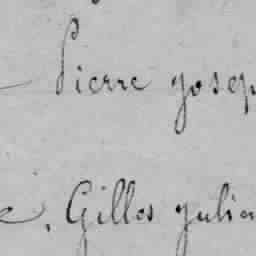 Pierre Josep
e. Gilles Julie